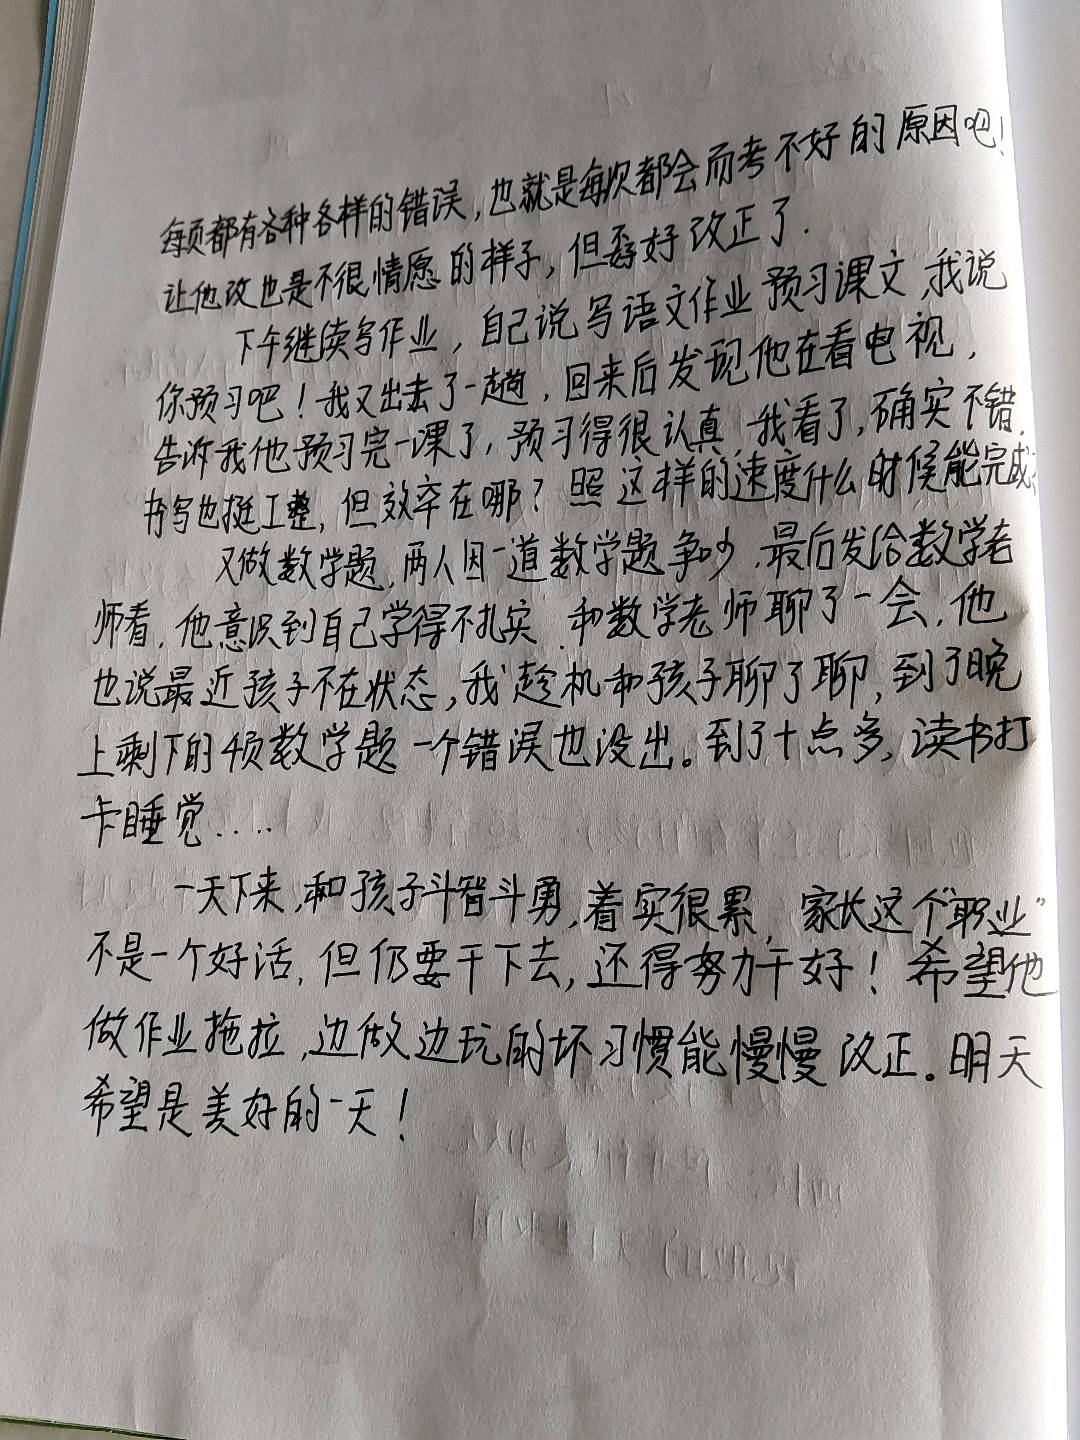 每页都有各种各样的错误,也就是每次都会而考不好的原因吧!
让他改也是不很情愿的样子,但还好改正了.
下午继续写作业,自己说写语文作业预习课文,我说
你预习吧!我又出去了一趟,回来后发现他在看电视,
告诉我他预习完一课了,预习得很认真 我看了,确实不错,
书写也挺工整,但效率在哪?照这样的速度什么时候能完成
又做数学题,两人因一道数学题争吵,最后发给数学老
师看,他意识到自己学得不扎实,和数学老师聊了一会,他
也说最近孩子不在状态,我趁机和孩子聊了聊,到了晚
上剩下的4页数学题一个错误也没出。到了十点多,读书打
卡睡觉.....
一天下来,和孩子斗智斗勇,着实很累,家长这个"职业"
不是一个好活,但仍要干下去,还得努力干好!希望他
做作业拖拉,边做边玩的坏习惯能慢慢改正。明天
希望是美好的一天!